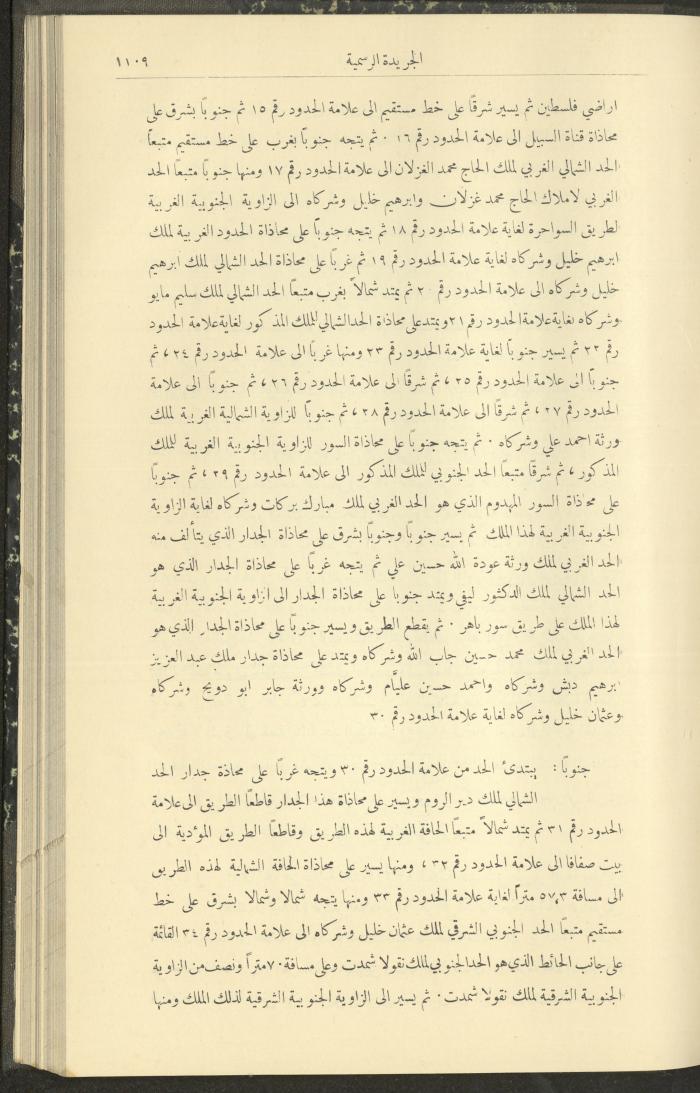 الجريدة الرسمية ١١٠٩
اراضي فلسطين ثم يسير شرقًا على خط مستقيم الى علامة الحدود رقم ١٥ ثم جنوبًا بشرق على
محاذاة قناة السبيل الى علامة الحدود رقم ١٦ ٠ ثم يتجه جنوبًا بغرب على خط مستقيم متبعًا
الحد الشمالي الغربي لملك الحاج محمد الغزلان الى علامة الحدود رقم ١٧ ومنها جنوبًا متبعًا الحد
الغربي لاملاك الحاج محمد غزلان وابرهيم خليل وشركاه الى الزاوية الجنوبية الغربية
لطريق السواحرة لغاية علامة الحدود رقم ١٨ ثم يتجه جنوبًا على محاذاة الحدود الغربية لملك
ابرهيم خليل وشركاه لغاية علامة الحدود رقم ١٩ ثم غربًا على محاذاة الحد الشمالي لملك ابرهيم
خليل وشركاه الى علامة الحدود رقم ٢٠ ثم يمتد شمالاً بغرب متبعًا الحد الشمالي لملك سليم مايو
وشركاه لغاية علامة الحدود رقم ٢١ ويمتد على محاذاة الحد الشمالي للملك المذكور لغاية علامة الحدود
رقم ٢٢ ثم يسير جنوبًا لغاية علامة الحدود رقم ٢٣ ومنها غربًا الى علامة الحدود رقم ٢٤ ، ثم
جنوبًا الى علامة الحدود رقم ٢٥ ، ثم شرقًا الى علامة الحدود رقم ٢٦ ، ثم جنوبًا الى علامة
الحدود رقم ٢٧ ، ثم شرقًا الى علامة الحدود رقم ٢٨ ، ثم جنوبًا للزاوية الشمالية الغربية لملك
ورثة احمد علي وشركاه ٠ ثم يتجه جنوبًا على محاذاة السور للزاوية الجنوبية الغربية للملك
المذكور ، ثم شرقًا متبعًا الحد الجنوبي للملك المذكور الى علامة الحدود رقم ٢٩ ، ثم جنوبًا
على محاذاة السور المهدوم الذي هو الحد الغربي لملك مبارك بركات وشركاه لغاية الزاوية
الجنوبية الغربية لهذا الملك ثم يسير جنوبًا وجنوبًا بشرق على محاذاة الجدار الذي يتألف منه
الحد الغربي لملك ورثة عودة الله حسين علي ثم يتجه غربًا على محاذاة الجدار الذي هو
الحد الشمالي لملك الدكتور ليفي ويمتد جنوبا على محاذاة الجدار الى الزاوية الجنوبية الغربية
لهذا الملك على طريق سور باهر ٠ ثم يقطع الطريق ويسير جنوبًا على محاذاة الجدار الذي هو
الحد الغربي لملك محمد حسين جاب الله وشركاه ويمتد على محاذاة جدار ملك عبد العزيز
ابرهيم دبش وشركاه واحمد حسين عليَّام وشركاه وورثة جابر ابو دويح وشركاه
وعثمان خليل وشركاه لغاية علامة الحدود رقم ٣٠
جنوبًا : يبتدئ الحد من علامة الحدود رقم ٣٠ ويتجه غربًا على محاذة جدار الحد
الشمالي لملك دير الروم ويسير على محاذاة هذا الجدار قاطعًا الطريق الى علامة
الحدود رقم ٣١ ثم يمتد شمالاً متبعًا الحافة الغربية لهذه الطريق وقاطعًا الطريق المؤدية الى
بيت صفافا الى علامة الحدود رقم ٣٢ ، ومنها يسير على محاذاة الحافة الشمالية لهذه الطريق
الى مسافة ٥٧,٣ مترًا لغاية علامة الحدود رقم ٣٣ ومنها يتجه شمالا وشمالا بشرق على خط
مستقيم متبعًا الحد الجنوبي الشرقي لملك عثمان خليل وشركاه الى علامة الحدود رقم ٣٤ القائمة
على جانب الحائط الذي هو الحد الجنوبي لملك نقولا شمدت وعلى مسافة ٧٠ مترًا ونصف من الزاوية
الجنوبية الشرقية لملك نقولا شمدت ٠ ثم يسير الى الزاوية الجنوبية الشرقية لذلك الملك ومنها